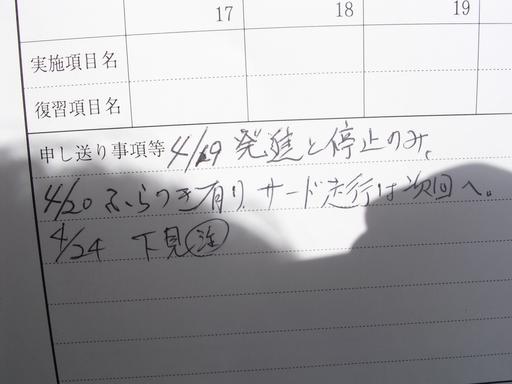 17 18 19
実施項目名
復習項目名
申し送り事項等 4/19 発進と停止のみ。
4/20 ふらつき有り サード走行は次回へ。
4/24 下見